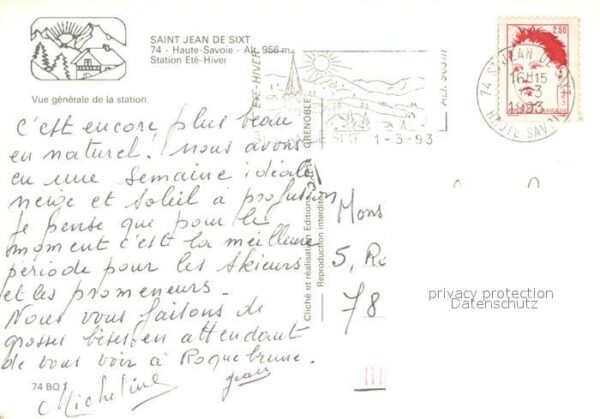 SAINT JEAN DE SIXT
74 - Haute-Savoie - Alt. 956 m
Station Eté-Hiver
Vue générale de la station
c'est encore plus beau
en naturel. nous avons
eu une semaine idéale
neige et soleil à profusion
je pense que pour le
moment c'est la meilleure
période pour les skieurs
et les promeneurs.
Nous vous faisons de
grosses bises en attendant
de vous voir à Roquebrune.
Micheline
Jean
74 BQ
Cliché et réalisation Edition
GRENOBLE
Reproduction interdite
ETE-HIVER
1-3-93
2,50
74 ST JEAN DE SIXT
16H15
1-3
1993
HAUTE SAVOIE
Mons
5, Ro
78
privacy protection
Datenschutz